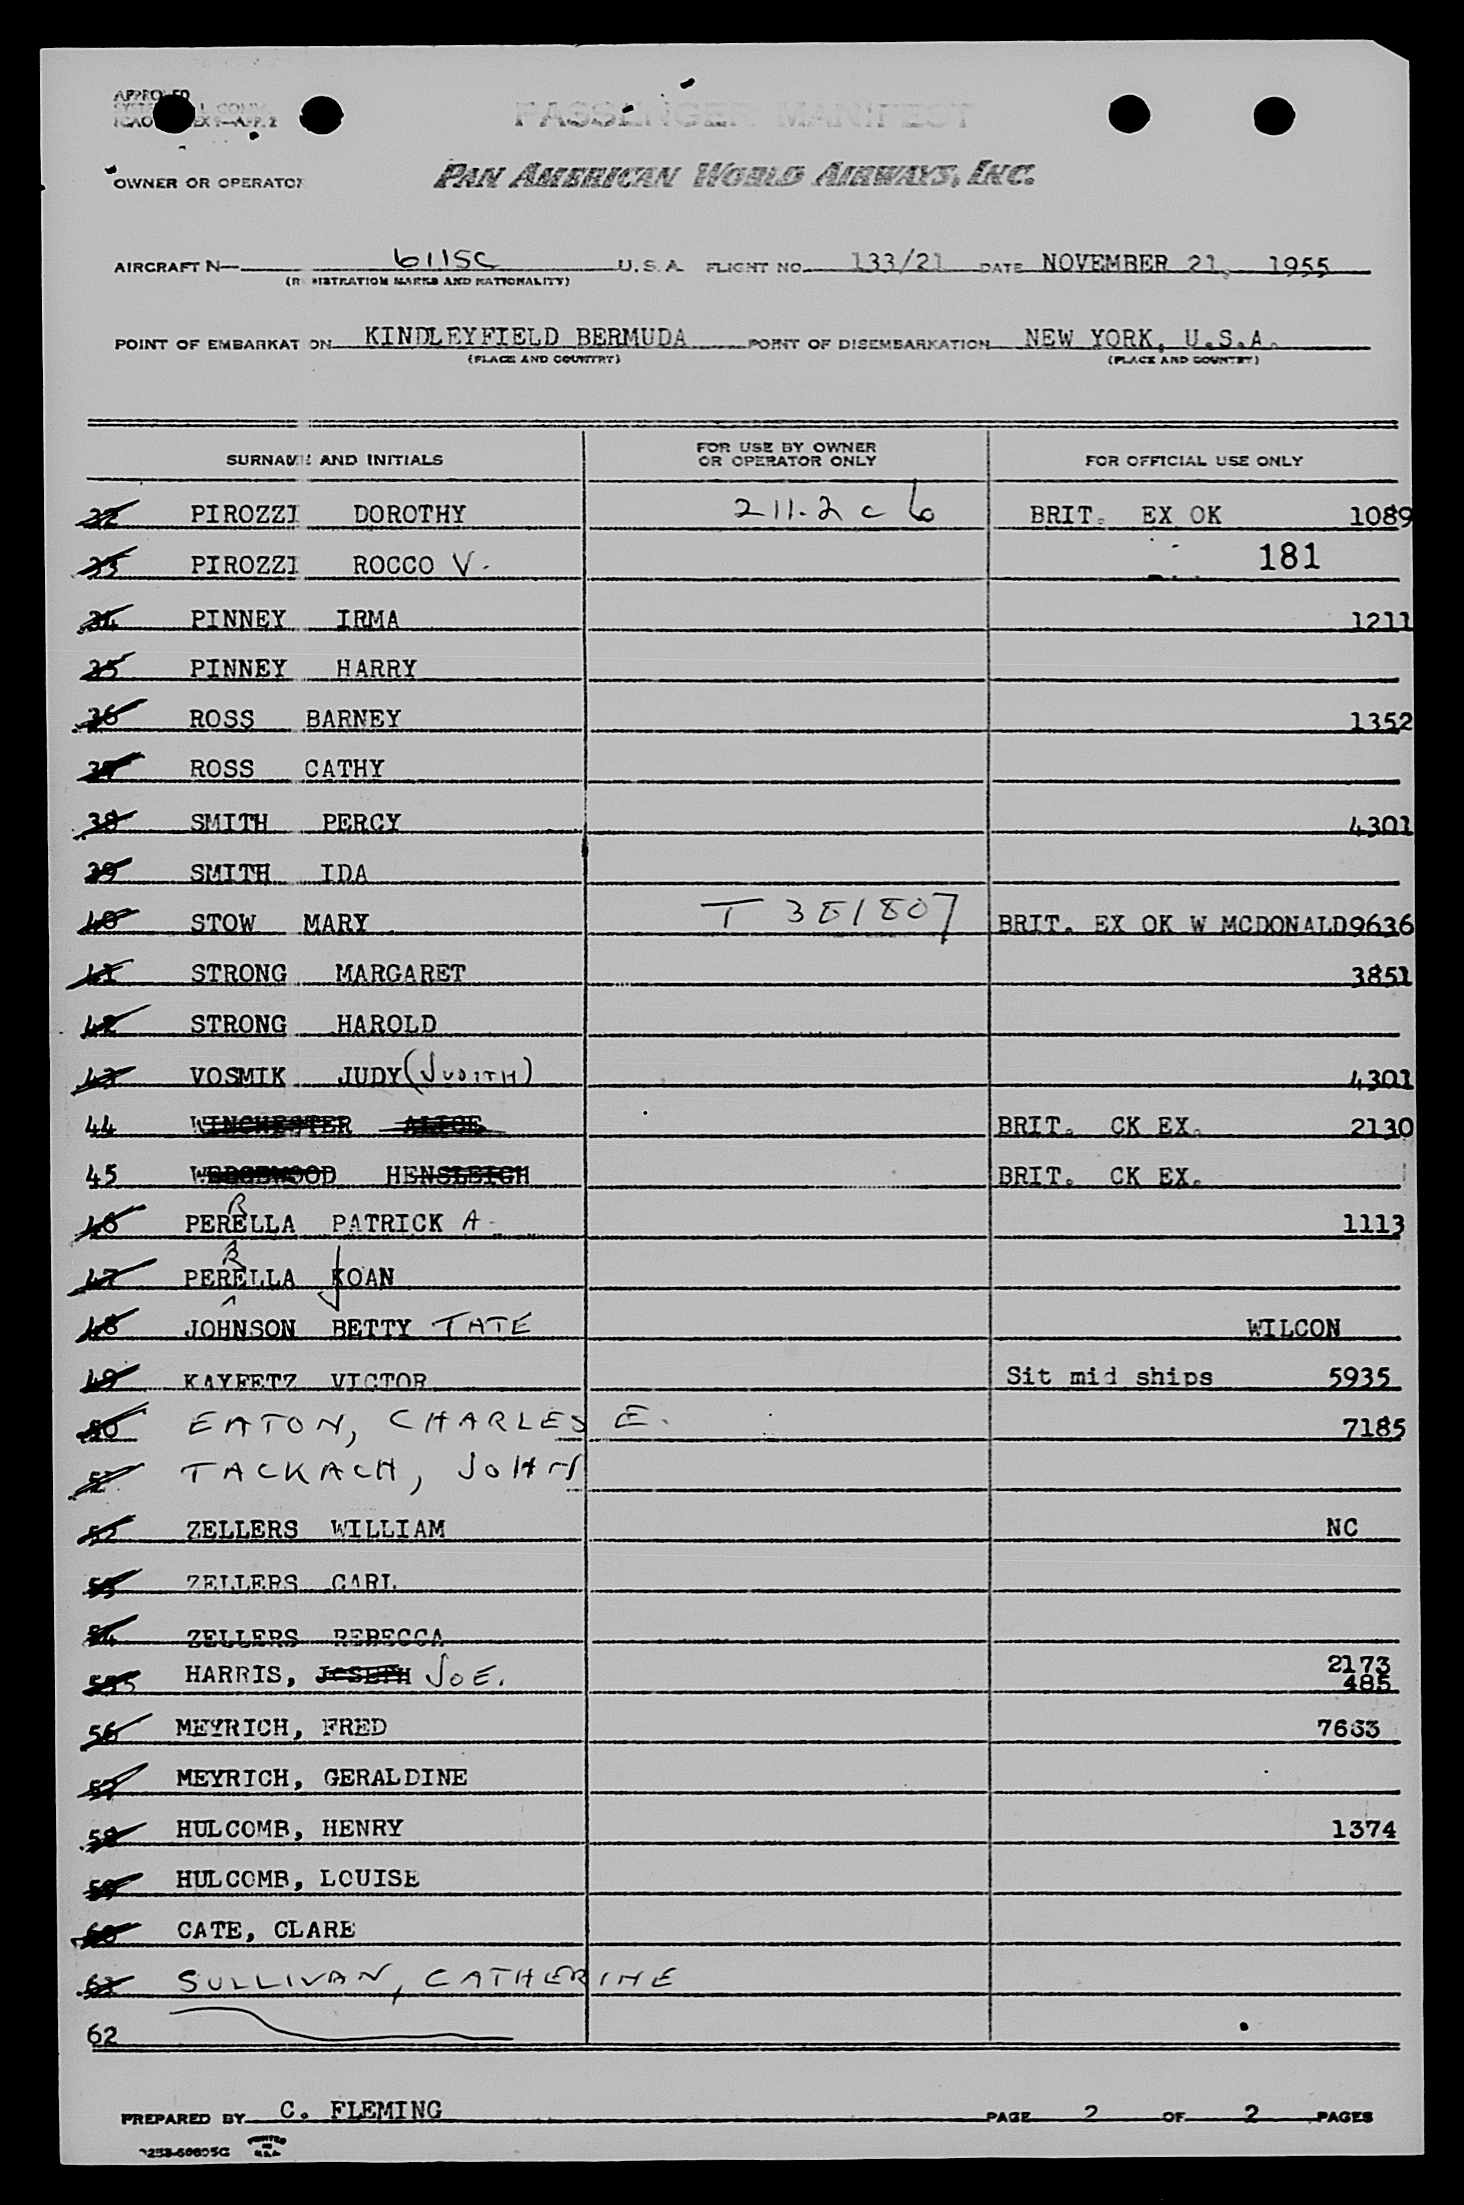 APPROVED
ICAO ANNEX 9—APP. 2
PASSENGER MANIFEST
OWNER OR OPERATOR PAN AMERICAN WORLD AIRWAYS, INC.
AIRCRAFT N— 6115C U.S.A. FLIGHT NO. 133/21 DATE NOVEMBER 21, 1955
(REGISTRATION MARKS AND NATIONALITY)
POINT OF EMBARKATION KINDLEYFIELD BERMUDA POINT OF DISEMBARKATION NEW YORK, U.S.A.
(PLACE AND COUNTRY) (PLACE AND COUNTRY)
SURNAME AND INITIALS FOR USE BY OWNER OR OPERATOR ONLY FOR OFFICIAL USE ONLY
32 PIROZZI DOROTHY 211.2 c 6 BRIT. EX OK 1089
33 PIROZZI ROCCO V. 181
34 PINNEY IRMA 1211
35 PINNEY HARRY
36 ROSS BARNEY 1352
37 ROSS CATHY
38 SMITH PERCY 4301
39 SMITH IDA
40 STOW MARY T 351807 BRIT. EX OK W MCDONALD9636
41 STRONG MARGARET 3851
42 STRONG HAROLD
43 VOSMIK JUDY (JUDITH) 4301
44 WINCHESTER ALICE BRIT. CK EX. 2130
45 WEDGEWOOD HENSLEIGH BRIT. CK EX.
46 PERRELLA PATRICK A. 1113
47 PERRELLA JOAN
48 JOHNSON BETTY TATE WILCON
49 KAYFETZ VICTOR Sit mid ships 5935
50 EATON, CHARLES E. 7185
51 TACKACH, JOHN
52 ZELLERS WILLIAM NC
53 ZELLERS CARL
54 ZELLERS REBECCA
55 HARRIS, JOSEPH JOE. 2173
485
56 MEYRICH, FRED 7663
57 MEYRICH, GERALDINE
58 HULCOMB, HENRY 1374
59 HULCOMB, LOUISE
60 CATE, CLARE
61 SULLIVAN, CATHERINE
62
PREPARED BY C. FLEMING PAGE 2 OF 2 PAGES
PRINTED IN U.S.A.